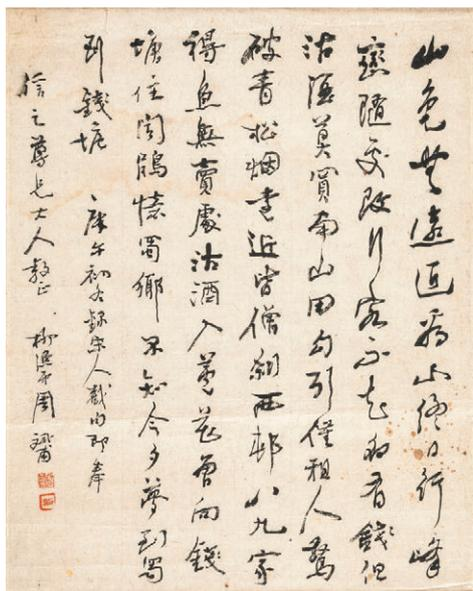 山色無遠近看山終日行峰
巒隨處改行客不知名有錢但
沽酒莫買南山田勾引催租人驚
破青松烟遠近皆僧刹西邨八九家
得魚無賣處沽酒入蘆花曾向錢
塘住聞鵑憶蜀鄉不知今夕夢到蜀
到錢塘 庚午初冬錄宋人截句即奉
信之尊兄大人教正 周